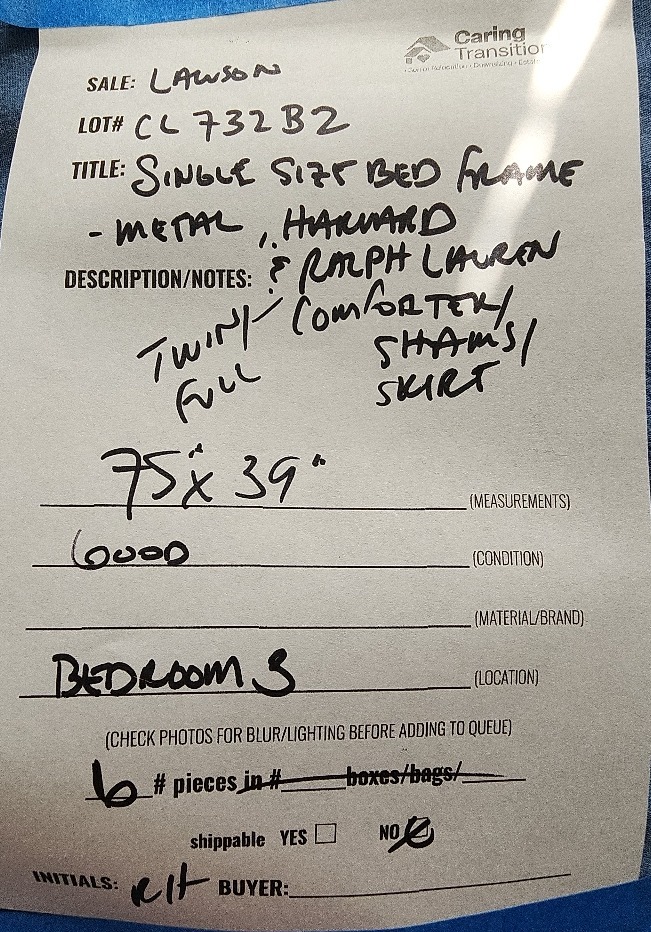 Caring
Transition
SALE: LAWSON
LOT# CL732B2
TITLE: SINGLE SIZE BED FRAME
- METAL, HARVARD
DESCRIPTION/NOTES: & RALPH LAUREN
TWIN/ COMFORTER/
FULL SHAMS/
SKIRT
75" x 39" (MEASUREMENTS)
GOOD (CONDITION)
(MATERIAL/BRAND)
BEDROOM 3 (LOCATION)
(CHECK PHOTOS FOR BLUR/LIGHTING BEFORE ADDING TO QUEUE)
6 # pieces in #____boxes/bags/____
shippable YES ☐ NO
INITIALS: RH BUYER: